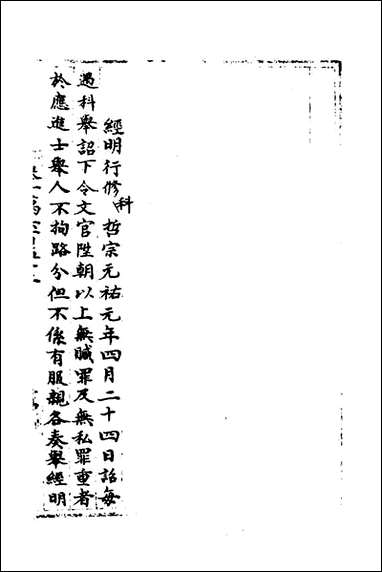 經明行修科 哲宗元祐元年四月二十四日詔每
遇科舉詔下令文官陞朝以上無贓罪及無私罪重者
於應進士舉人不拘路分但不係有服親各奏舉經明